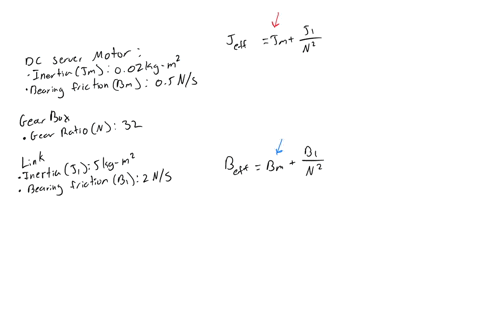 DC Server Motor:
• Inertia (Jm): 0.02 kg-m²
• Bearing friction (Bm): 0.5 N/S
Gear Box
• Gear Ratio (N): 32
Link
• Inertia (J₁): 5 kg-m²
• Bearing friction (B₁): 2 N/S
J_eff = Jm + J₁/N²
B_eff = Bm + B₁/N²